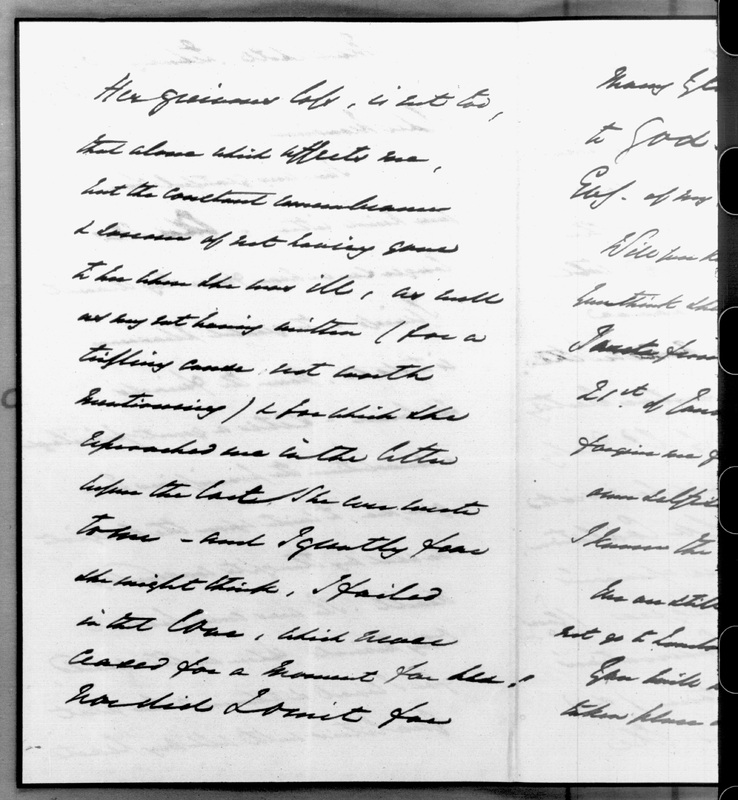 Her grievous loss, is not too,
that alone which affects me,
but the constant remembrance
& sorrow of not having gone
to her when she was ill, as well
as my not having written (for a
trifling cause not worth
mentioning) & for which she
reproached me in the letter
before the last she ever wrote
to me - and I greatly fear
she might think, I failed
in that love, which never
ceased for a moment for her,
nor did I omit for
Many
to God
of my
Will you
I
21st. of
forgive me
own
I know the
We are still
not go to
taken place